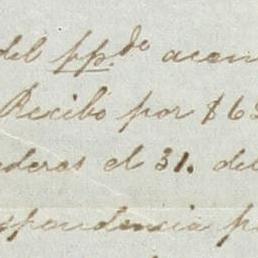 del pp.do acom
Recibo por $63
ederas el 31. del
spondencia p